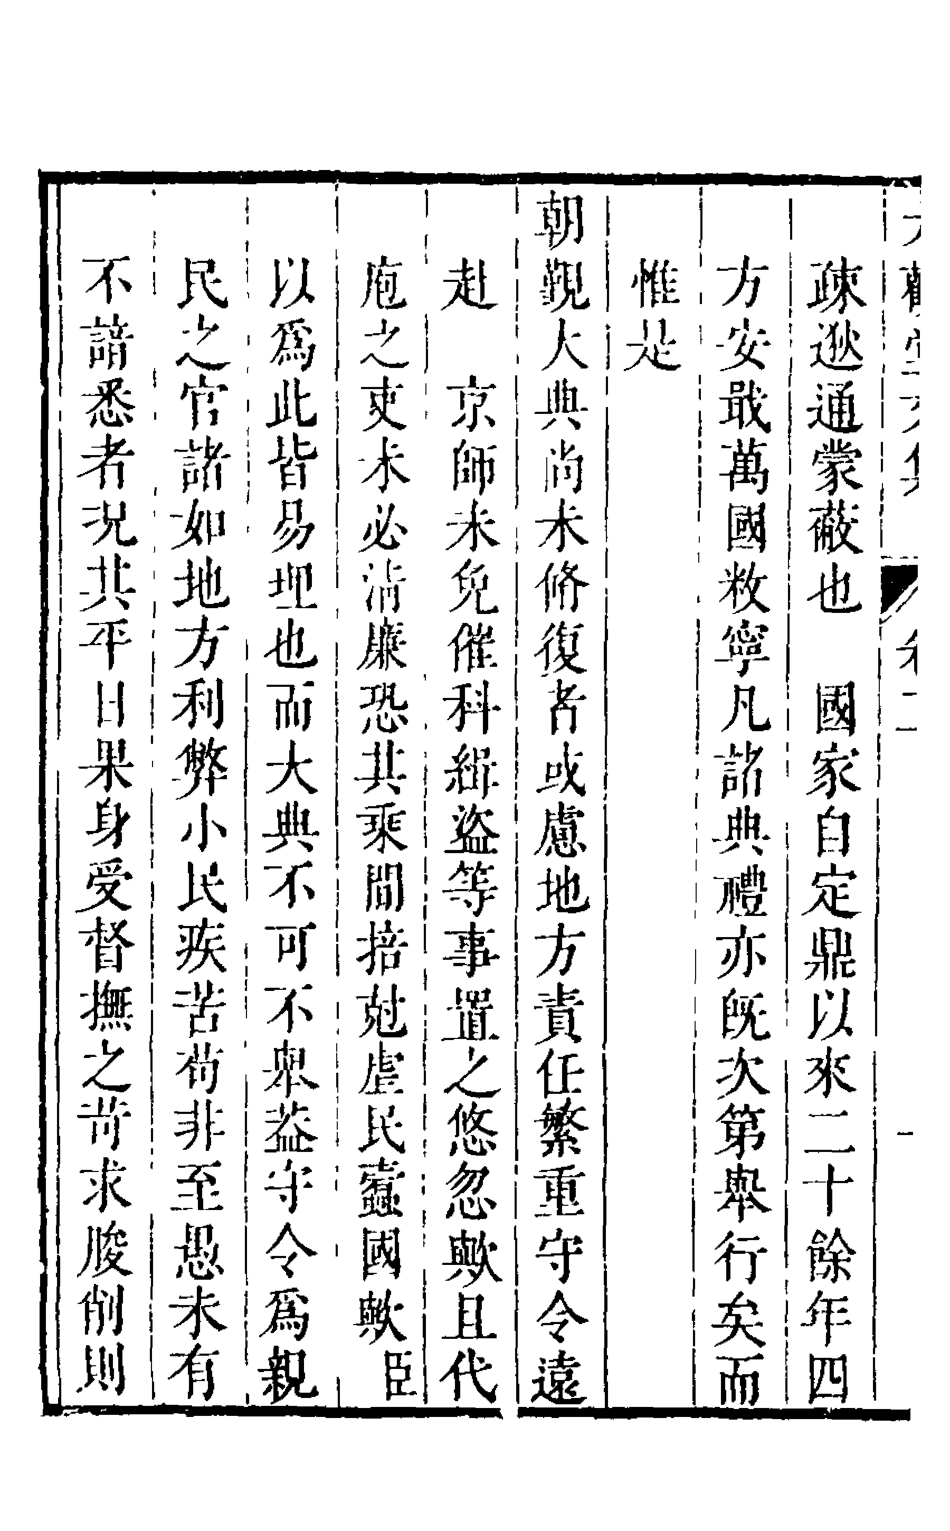 疎逖通蒙蔽也　國家自定鼎以來二十餘年四
方安戢萬國敉寧凡諸典禮亦旣次第舉行矣而
惟是
朝覲大典尚未修復者或慮地方責任繁重守令遠
赴　京師未免催科緝盜等事置之悠忽歟且代
庖之吏未必淸廉恐其乘間掊尅虐民蠹國歟臣
以爲此皆易理也而大典不可不舉葢守令爲親
民之官諸如地方利弊小民疾苦苟非至愚未有
不諳悉者况其平日果身受督撫之苛求朘削則